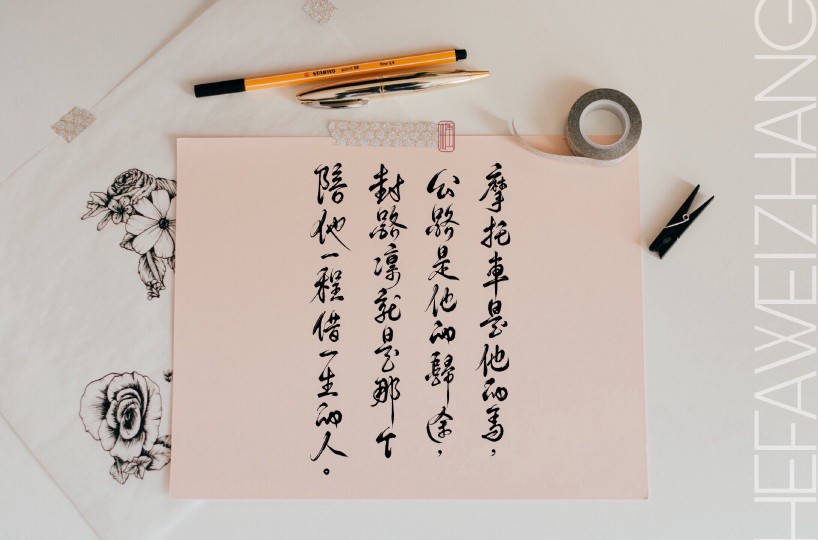 摩托車是他的馬，
公路是他的歸途，
封路凛就是那个
陪他一程借一生的人。
HEFAWEIZHANG
STABILO point 88 fine 0,4